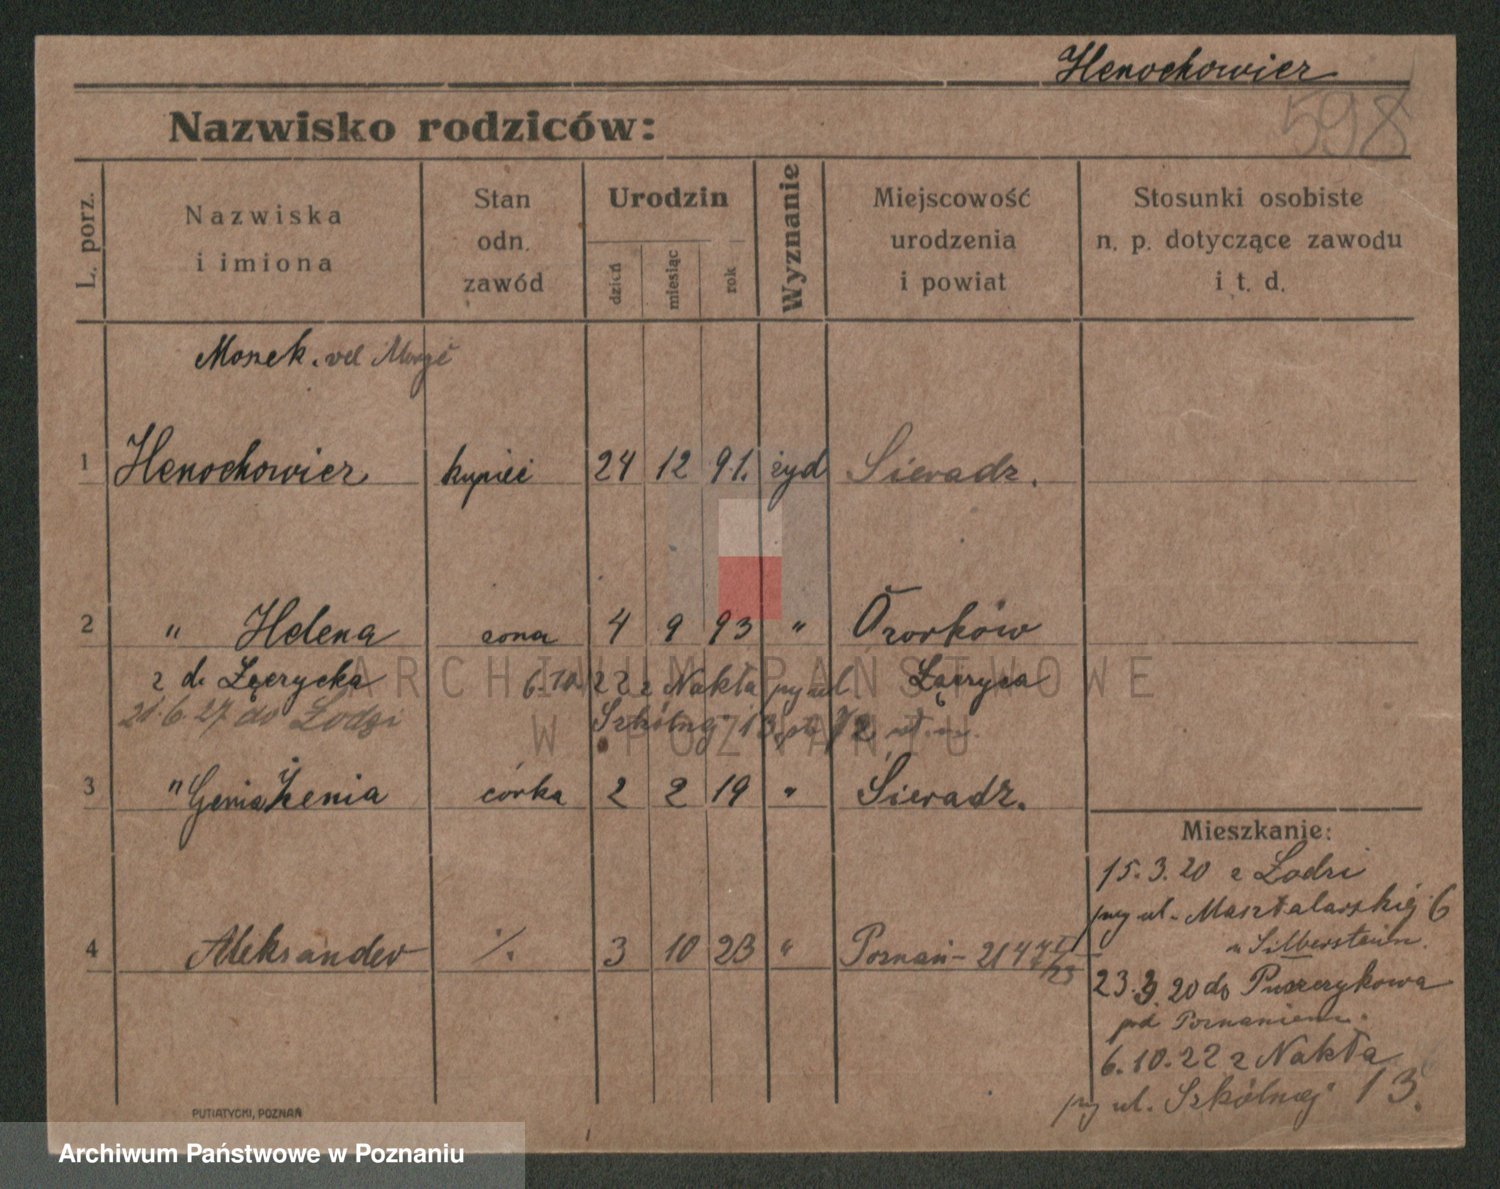 Henochowicz
598
Nazwisko rodziców:
L. porz.
Nazwiska
i imiona
Stan
odn.
zawód
Urodzin
dzień
miesiąc
rok
Wyznanie
Miejscowość
urodzenia
i powiat
Stosunki osobiste
n. p. dotyczące zawodu
i t. d.
Moszek. vel
1 Henochowicz kupiec 24 12 91. żyd Sieradz.
2 " Helena żona 4 9 93 " Ozorków
z d. Łęczycka 6.10.22 z Nakła przy ul. Łęczyca
21.6.27 do Łodzi Szkólnej 13
3 " Genia Żenia córka 2 2 19 " Sieradz.
Mieszkanie:
15.3.20 z Łodzi
przy ul. Masztalarskiej 6
u Silberstein.
4 Aleksander /. 3 10 23 " Poznań
23.9.20 do Puszczykowa
pod Poznaniem.
6.10.22 z Nakła
przy ul. Szkólnej 13.
PUTIATYCKI, POZNAŃ
ARCHIWUM PAŃSTWOWE
W POZNANIU
Archiwum Państwowe w Poznaniu